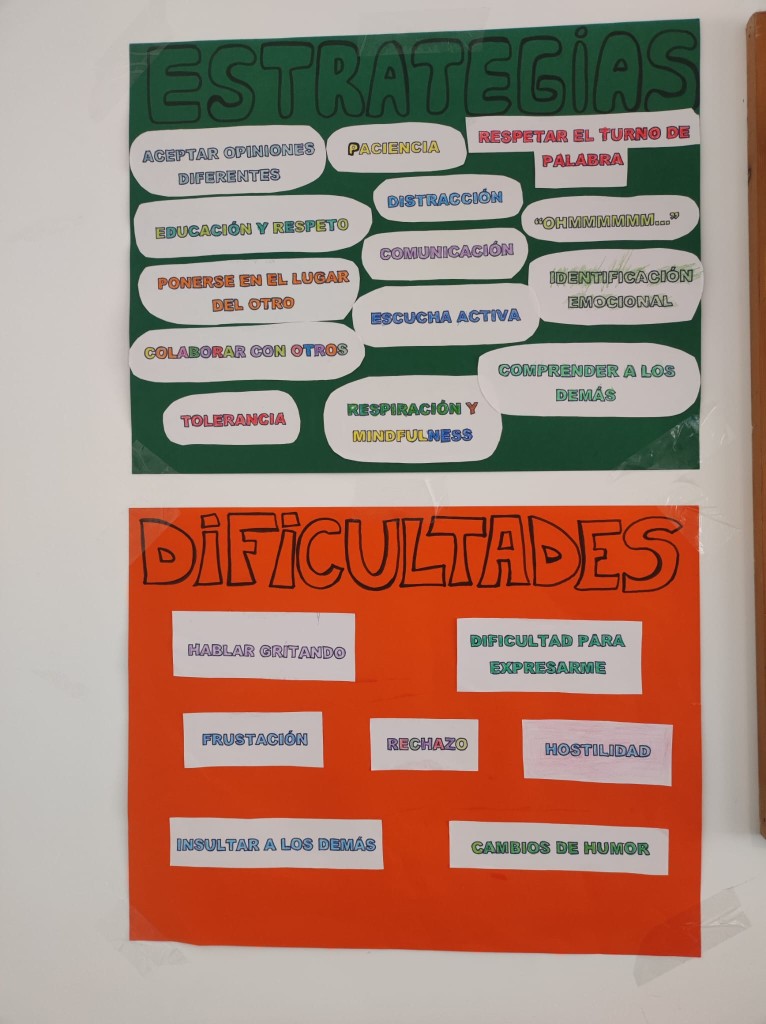 ESTRATEGIAS
ACEPTAR OPINIONES
DIFERENTES
PACIENCIA
RESPETAR EL TURNO DE
PALABRA
DISTRACCIÓN
EDUCACIÓN Y RESPETO
"OHMMMMMM..."
COMUNICACIÓN
PONERSE EN EL LUGAR
DEL OTRO
IDENTIFICACIÓN
EMOCIONAL
ESCUCHA ACTIVA
COLABORAR CON OTROS
COMPRENDER A LOS
DEMÁS
TOLERANCIA
RESPIRACIÓN Y
MINDFULNESS
DIFICULTADES
HABLAR GRITANDO
DIFICULTAD PARA
EXPRESARME
FRUSTACIÓN
RECHAZO
HOSTILIDAD
INSULTAR A LOS DEMÁS
CAMBIOS DE HUMOR